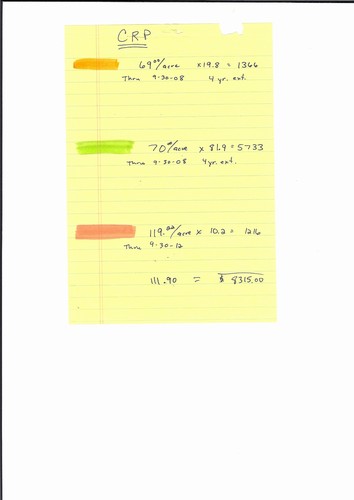 CRP
69.00/acre x19.8 = 1366
Thru 9-30-08 4 yr. ext.
70.00/acre x 81.9 = 5733
Thru 9-30-08 4 yr. ext.
119.00/acre x 10.2 = 1216
Thru 9-30-12
111.90 = $ 8315.00